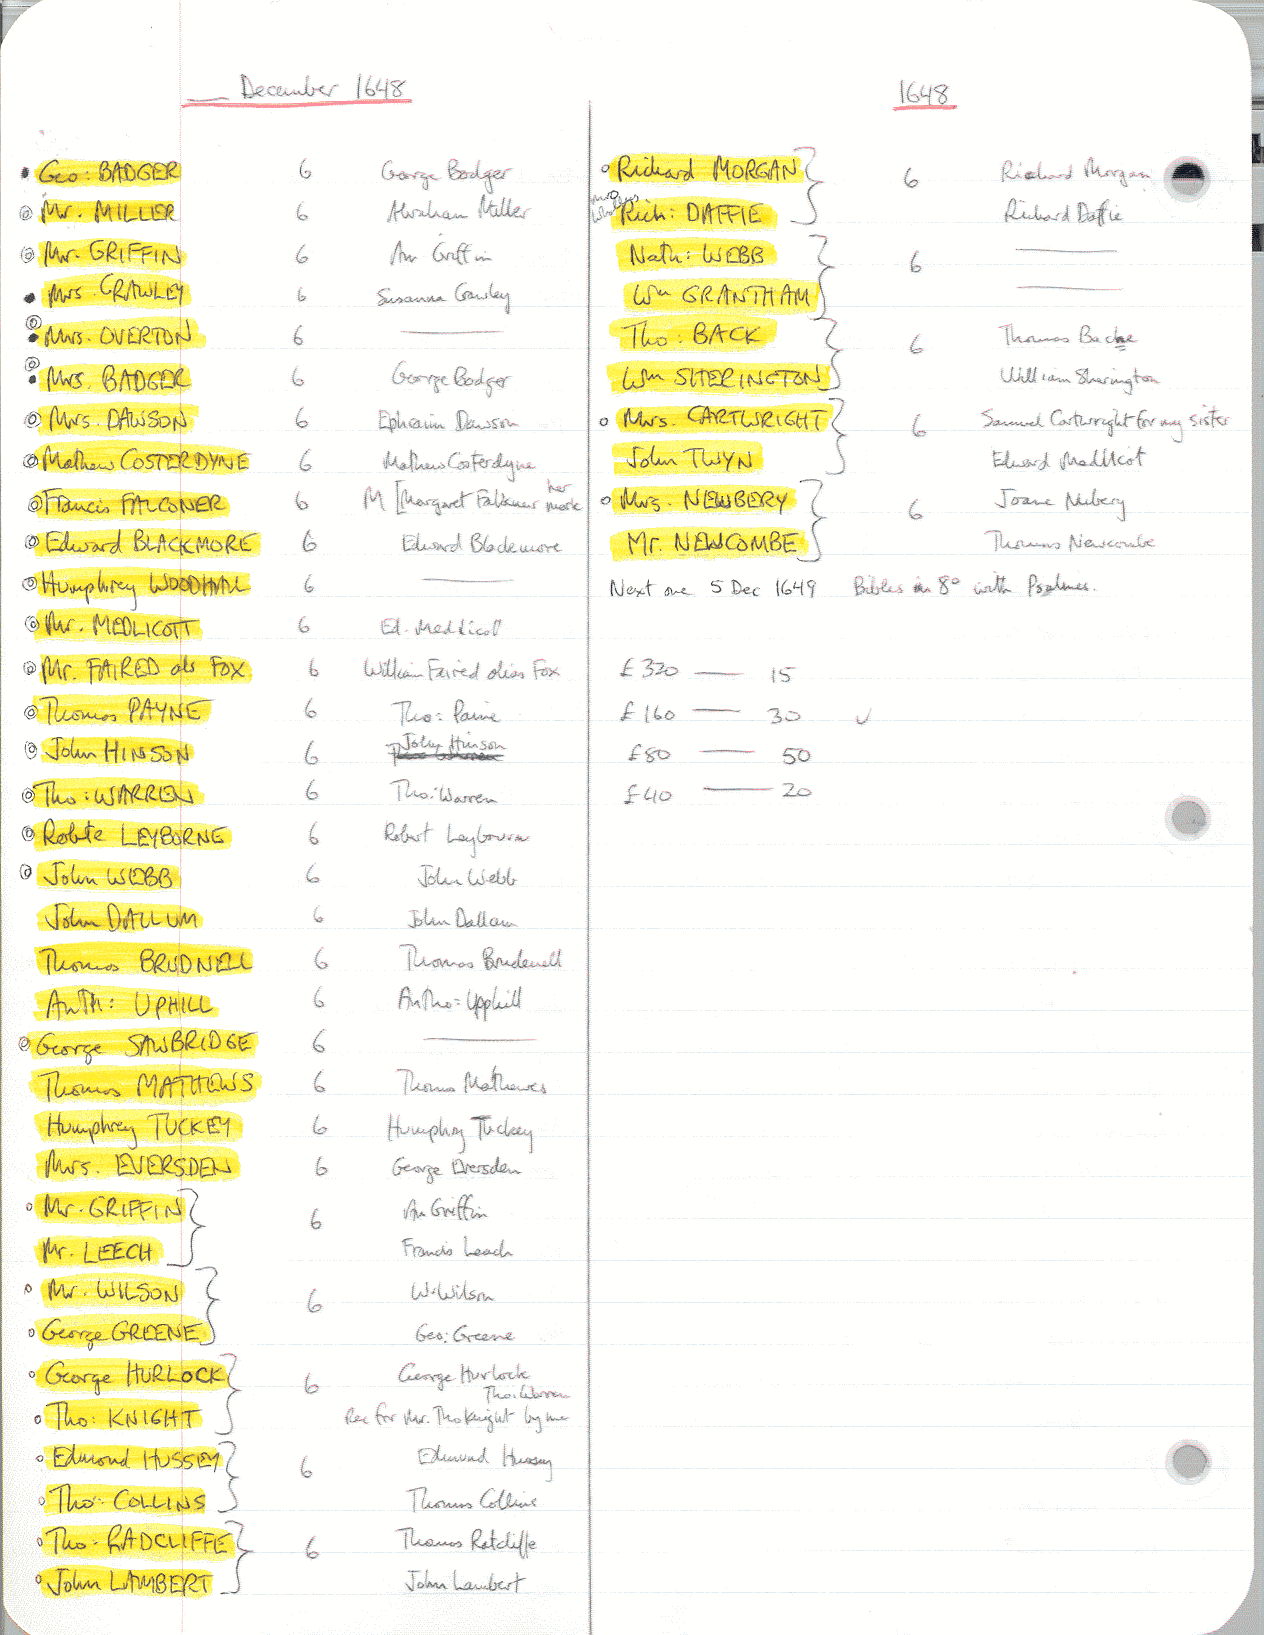 December 1648
Geo: BADGER 6 George Badger
Mr. MILLER 6 Abraham Miller
Mr. GRIFFIN 6 An Griffin
Mrs. CRAWLEY 6 Susanna Crawley
Mrs. OVERTON 6 ———
Mrs. BADGER 6 George Badger
Mrs. DAWSON 6 Ephraim Dawson
Mathew COSTERDYNE 6 Mathew Costerdyne
Francis FALCONER 6 M [Margaret Falkner her mark
Edward BLACKMORE 6 Edward Blackmore
Humphrey WOODHALL 6 ———
Mr. MEDLICOTT 6 Ed. Medlicott
Mr. FAIRED als FOX 6 William Faired alias Fox
Thomas PAYNE 6 Tho: Paine
John HINSON 6 John Hinson
Tho: WARREN 6 Tho: Warren
Robte LEYBORNE 6 Robert Leybourne
John WEBB 6 John Webb
John DALLUM 6 John Dallam
Thomas BRUDNELL 6 Thomas Brudenell
Anth: UPHILL 6 Antho: Upphill
George SAWBRIDGE 6 ———
Thomas MATHEWS 6 Thomas Mathewes
Humphrey TUCKEY 6 Humphry Tuckey
Mrs. EVERSDEN 6 George Eversden
Mr. GRIFFIN } 6 An Griffin
Mr. LEECH Francis Leach
Mr. WILSON } 6 W. Wilson
George GREENE Geo: Greene
George HURLOCK } 6 George Hurlock
Tho: Warren
Tho: KNIGHT Rec for Mr. Tho Knight by me
Edmond HUSSEY } 6 Edmund Hussey
Tho: COLLINS Thomas Collins
Tho: RADCLIFFE } 6 Thomas Ratcliffe
John LAMBERT John Lambert
1648
Richard MORGAN } 6 Richard Morgan
Rich: DAFFIE Richard Daffie
Nath: WEBB } 6 ———
Wm GRANTHAM ———
Tho: BACK } 6 Thomas Backe
Wm SHERINGTON William Sherington
Mrs. CARTWRIGHT } 6 Samuel Cartwright for my sister
John TWYN Edward Medlicot
Mrs. NEWBERY } 6 Joane Nubery
Mr. NEWCOMBE Thomas Newcombe
Next one 5 Dec 1649 Bibles in 8o with Psalmes.
£320 — 15
£160 — 30 ✓
£80 — 50
£40 — 20